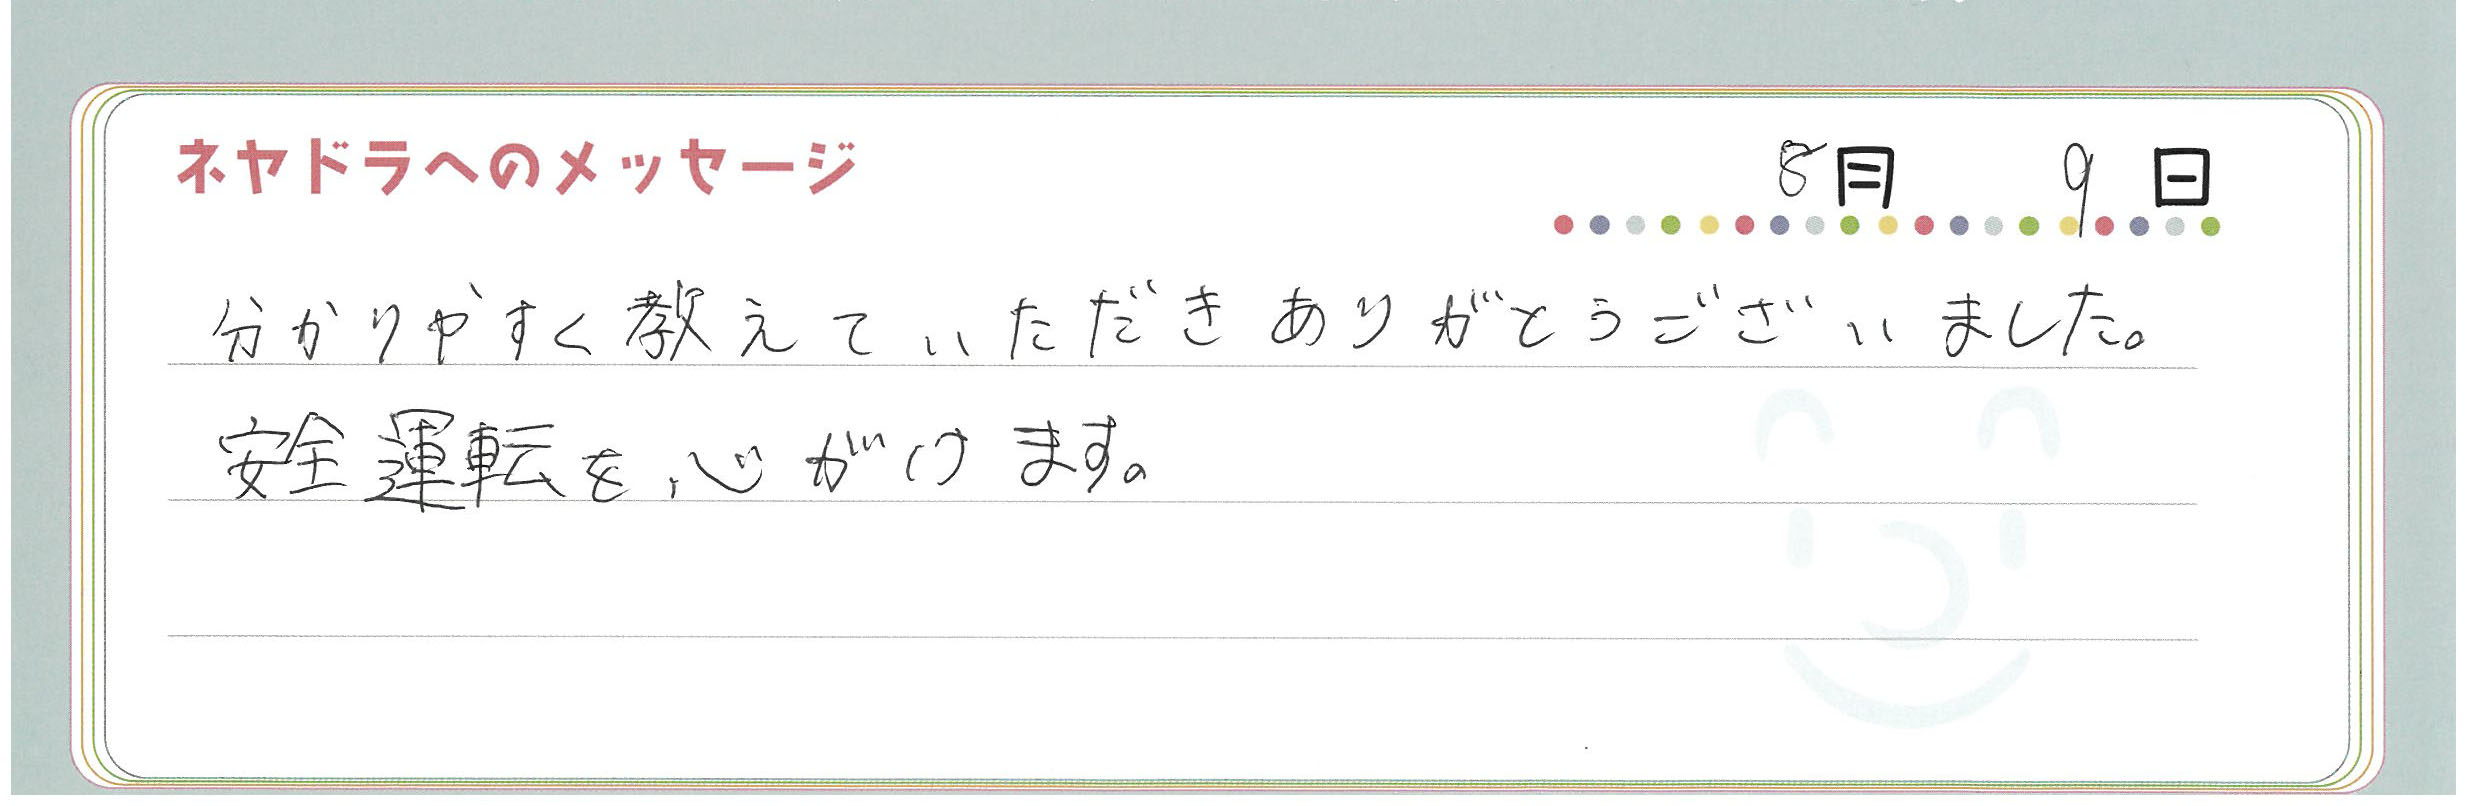 ネヤドラへのメッセージ
8月 9日
分かりやすく教えていただきありがとうございました。
安全運転を心がけます。